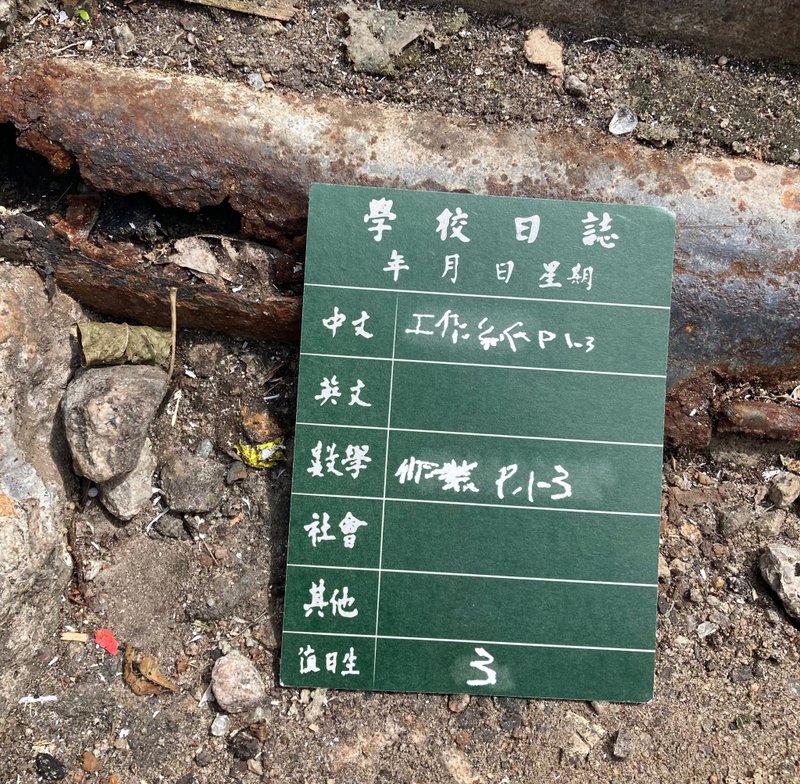 學校日誌
年 月 日 星期
中文 工作紙 P 1-3
英文
數學 作業 P.1-3
社會
其他
值日生 3